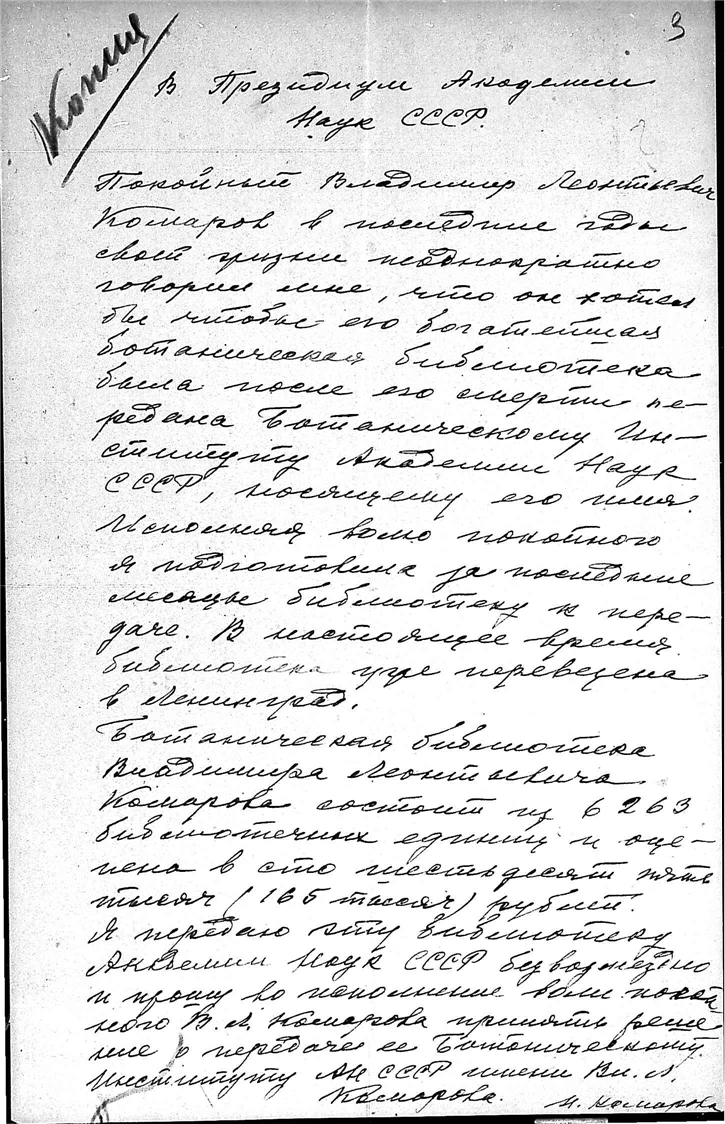 3
Копия
В Президиум Академии
Наук СССР.
Покойный Владимир Леонтьевич
Комаров в последние годы
своей жизни неоднократно
говорил мне, что он хотел
бы чтобы его богатейшая
ботаническая библиотека
была после его смерти пе-
редана Ботаническому Ин-
ституту Академии Наук
СССР, носящему его имя.
Исполняя волю покойного
я подготовила за последние
месяцы библиотеку к пере-
даче. В настоящее время
библиотека уже перевезена
в Ленинград.
Ботаническая библиотека
Владимира Леонтьевича
Комарова состоит из 6263
библиотечных единиц и оце-
нена в сто шестьдесят пять
тысяч (165 тысяч) рублей.
Я передаю эту библиотеку
Академии Наук СССР безвозмездно
и прошу во исполнение воли покой-
ного В. Л. Комарова принять реше
ние о передаче ее Ботаническому
Институту АН СССР имени Вл. Л.
Комарова.
Н. Комарова